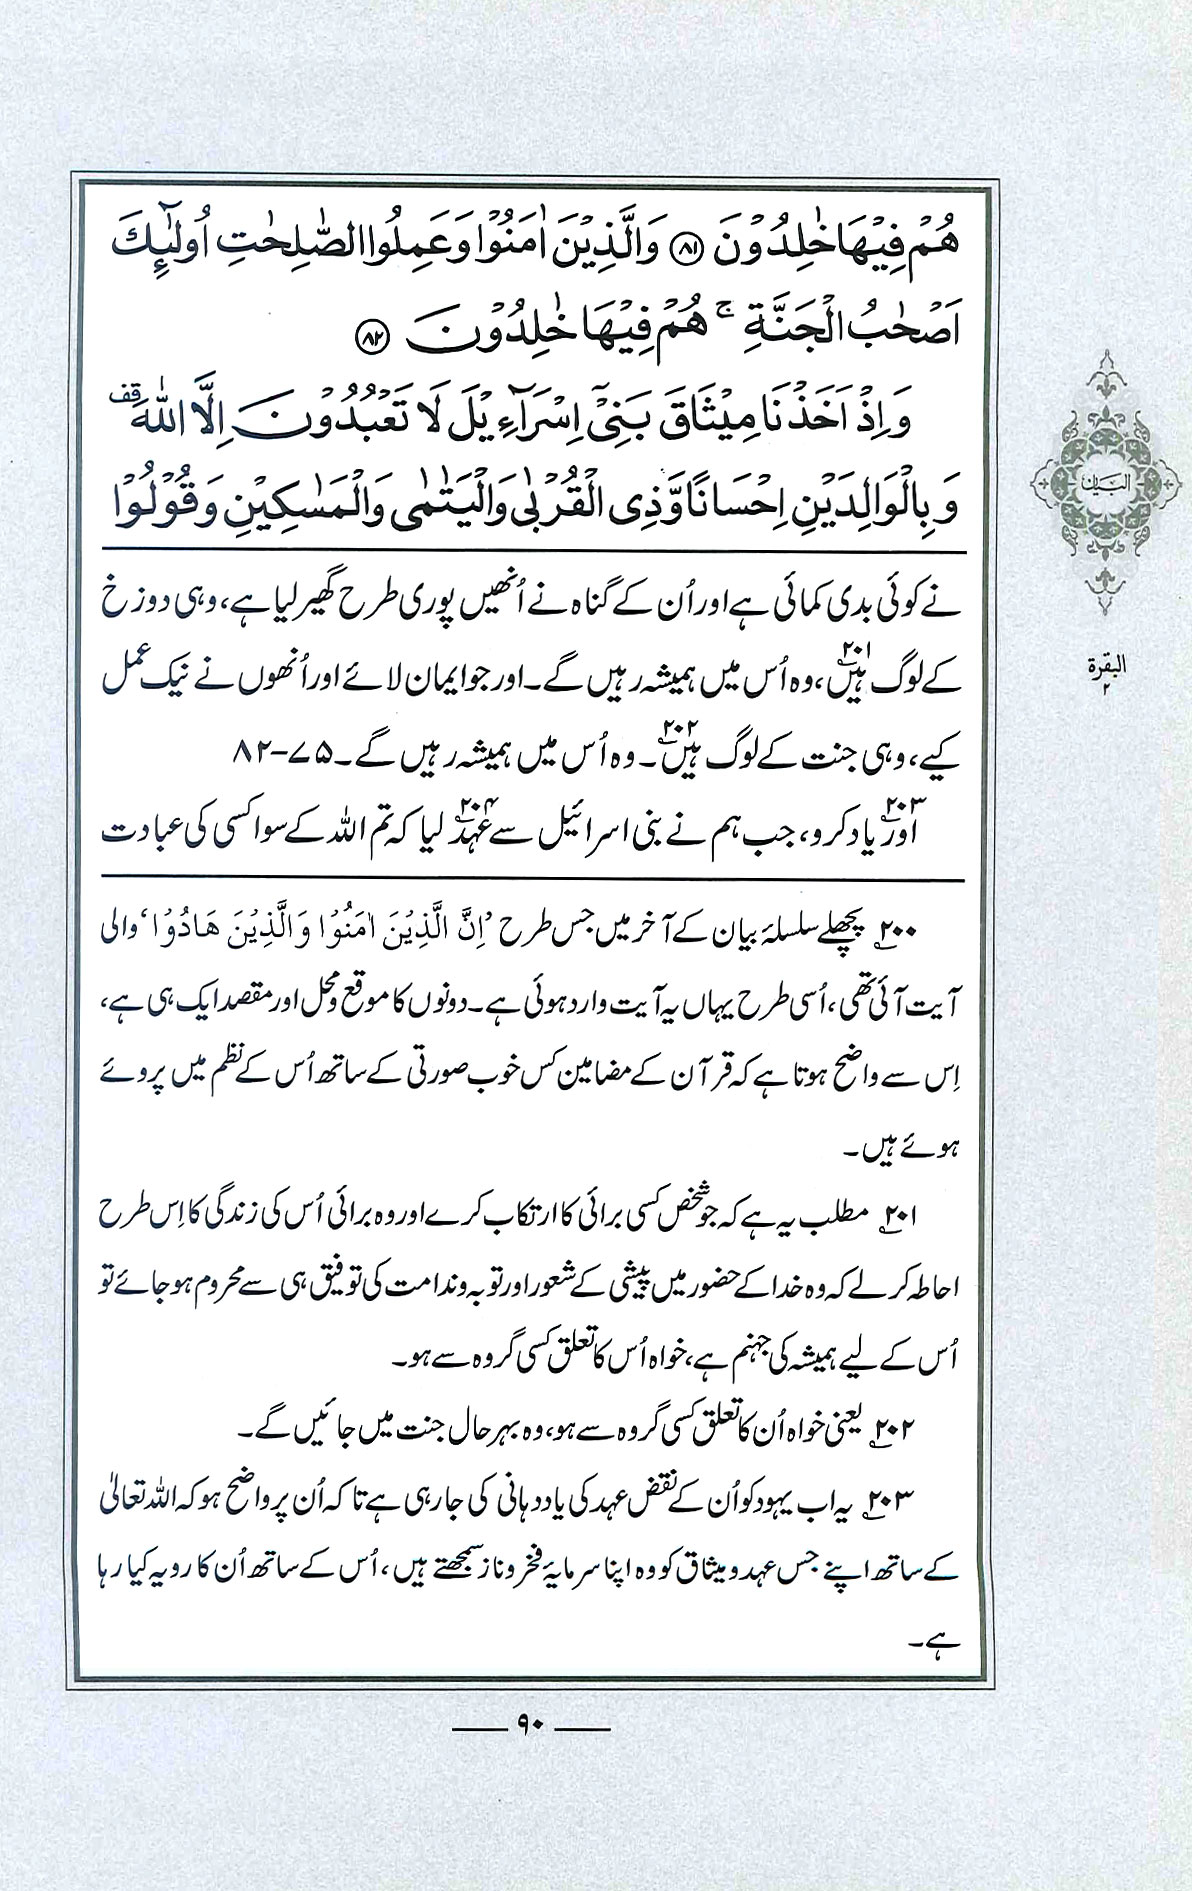 هُمْ فِيْهَا خٰلِدُوْنَ ﴿٨١﴾ وَالَّذِيْنَ اٰمَنُوْا وَعَمِلُوا الصّٰلِحٰتِ اُولٰٓئِكَ
اَصْحٰبُ الْجَنَّةِ ۚ هُمْ فِيْهَا خٰلِدُوْنَ ﴿٨٢﴾
وَاِذْ اَخَذْنَا مِيْثَاقَ بَنِيْٓ اِسْرَآءِيْلَ لَا تَعْبُدُوْنَ اِلَّا اللّٰهَ قف
وَبِالْوَالِدَيْنِ اِحْسَانًا وَّذِى الْقُرْبٰى وَالْيَتٰمٰى وَالْمَسٰكِيْنِ وَقُوْلُوْا
نے کوئی بدی کمائی ہے اور اُن کے گناہ نے اُنھیں پوری طرح گھیر لیا ہے، وہی دوزخ
کے لوگ ہیں۲۰۱، وہ اُس میں ہمیشہ رہیں گے۔ اور جو ایمان لائے اور اُنھوں نے نیک عمل
کیے، وہی جنت کے لوگ ہیں۲۰۲۔ وہ اُس میں ہمیشہ رہیں گے۔ ۷۵-۸۲
اور۲۰۳ یاد کرو، جب ہم نے بنی اسرائیل سے عہد۲۰۴ لیا کہ تم اللہ کے سوا کسی کی عبادت
۲۰۰ پچھلے سلسلۂ بیان کے آخر میں جس طرح ’اِنَّ الَّذِيْنَ اٰمَنُوْا وَالَّذِيْنَ هَادُوْا‘ والی
آیت آئی تھی، اُسی طرح یہاں یہ آیت وارد ہوئی ہے۔ دونوں کا موقع و محل اور مقصد ایک ہی ہے،
اِس سے واضح ہوتا ہے کہ قرآن کے مضامین کس خوب صورتی کے ساتھ اُس کے نظم میں پروئے
ہوئے ہیں۔
۲۰۱ مطلب یہ ہے کہ جو شخص کسی برائی کا ارتکاب کرے اور وہ برائی اُس کی زندگی کا اِس طرح
احاطہ کر لے کہ وہ خدا کے حضور میں پیشی کے شعور اور توبہ و ندامت کی توفیق ہی سے محروم ہو جائے تو
اُس کے لیے ہمیشہ کی جہنم ہے، خواہ اُس کا تعلق کسی گروہ سے ہو۔
۲۰۲ یعنی خواہ اُن کا تعلق کسی گروہ سے ہو، وہ بہرحال جنت میں جائیں گے۔
۲۰۳ یہ اب یہود کو اُن کے نقض عہد کی یاددہانی کی جا رہی ہے تاکہ اُن پر واضح ہو کہ اللہ تعالیٰ
کے ساتھ اپنے جس عہد و میثاق کو وہ اپنا سرمایۂ فخر و ناز سمجھتے ہیں، اُس کے ساتھ اُن کا رویہ کیا رہا
ہے۔
البیان
البقرة
۲
۹۰